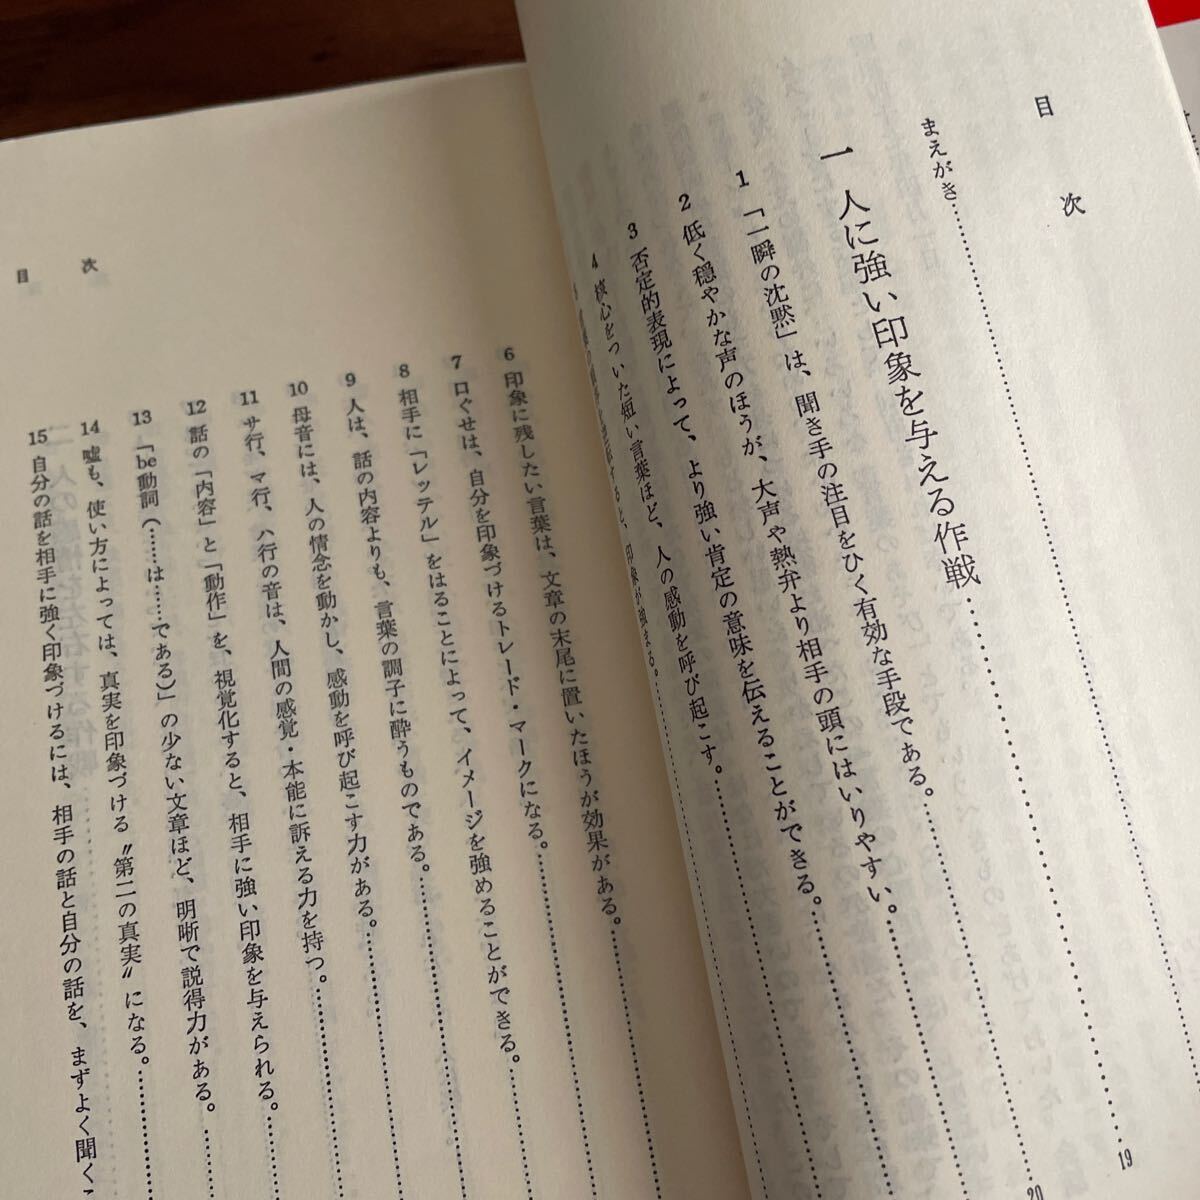 目次
まえがき
一 人に強い印象を与える作戦 19
1 「一瞬の沈黙」は、聞き手の注目をひく有効な手段である。 20
2 低く穏やかな声のほうが、大声や熱弁より相手の頭にはいりやすい。
3 否定的表現によって、より強い肯定の意味を伝えることができる。
4 核心をついた短い言葉ほど、人の感動を呼び起こす。
すると、印象が強まる。
6 印象に残したい言葉は、文章の末尾に置いたほうが効果がある。
7 口ぐせは、自分を印象づけるトレード・マークになる。
8 相手に「レッテル」をはることによって、イメージを強めることができる。
9 人は、話の内容よりも、言葉の調子に酔うものである。
10 母音には、人の情念を動かし、感動を呼び起こす力がある。
11 サ行、マ行、ハ行の音は、人間の感覚・本能に訴える力を持つ。
12 話の「内容」と「動作」を、視覚化すると、相手に強い印象を与えられる。
13 「be動詞(……は……である)」の少ない文章ほど、明晰で説得力がある。
14 嘘も、使い方によっては、真実を印象づける〝第二の真実〟になる。
15 自分の話を相手に強く印象づけるには、相手の話と自分の話を、まずよく聞くこ
目次